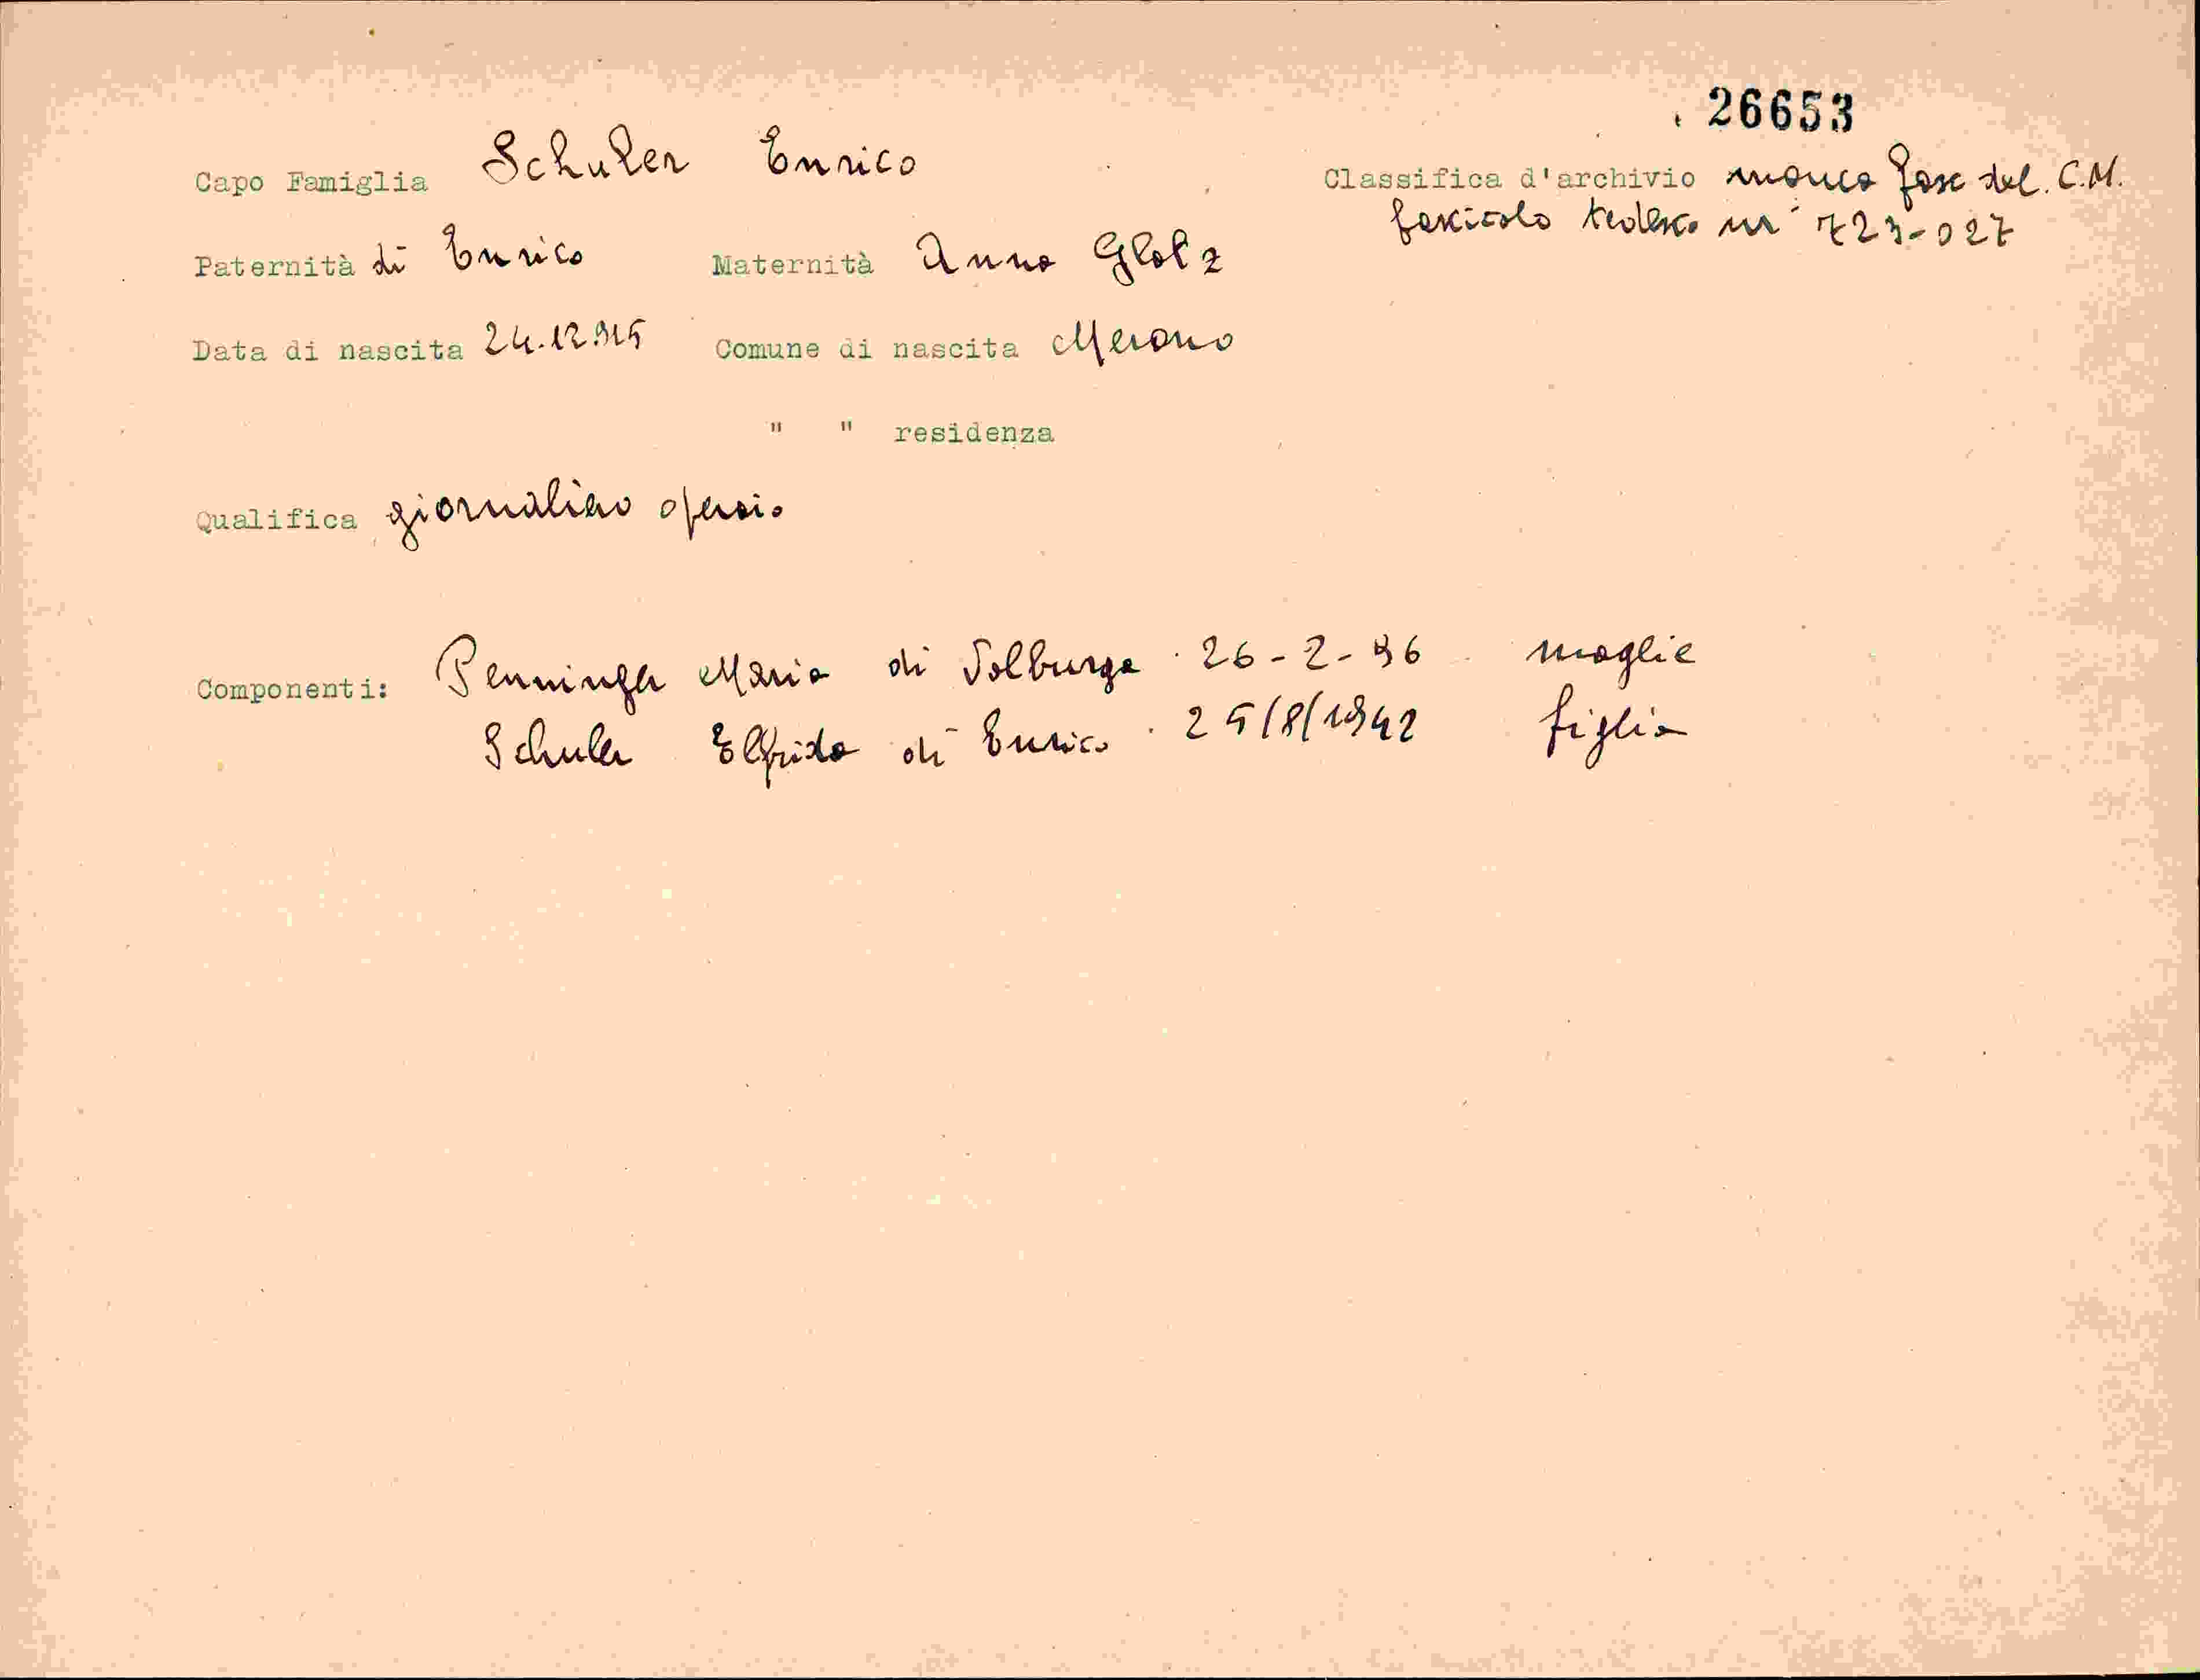 26653
Capo Famiglia Schuler Enrico
Classifica d'archivio manca fasc del. C.M.
fascicolo tedesco nr 723-027
Paternità di Enrico Maternità Anna Glatz
Data di nascita 24.12.915 Comune di nascita Merano
" " residenza
Qualifica giornaliero operaio
Componenti: Penninger Maria di 26-2- moglie
Schuler Elfrida di Enrico 25/8/1942 figlia